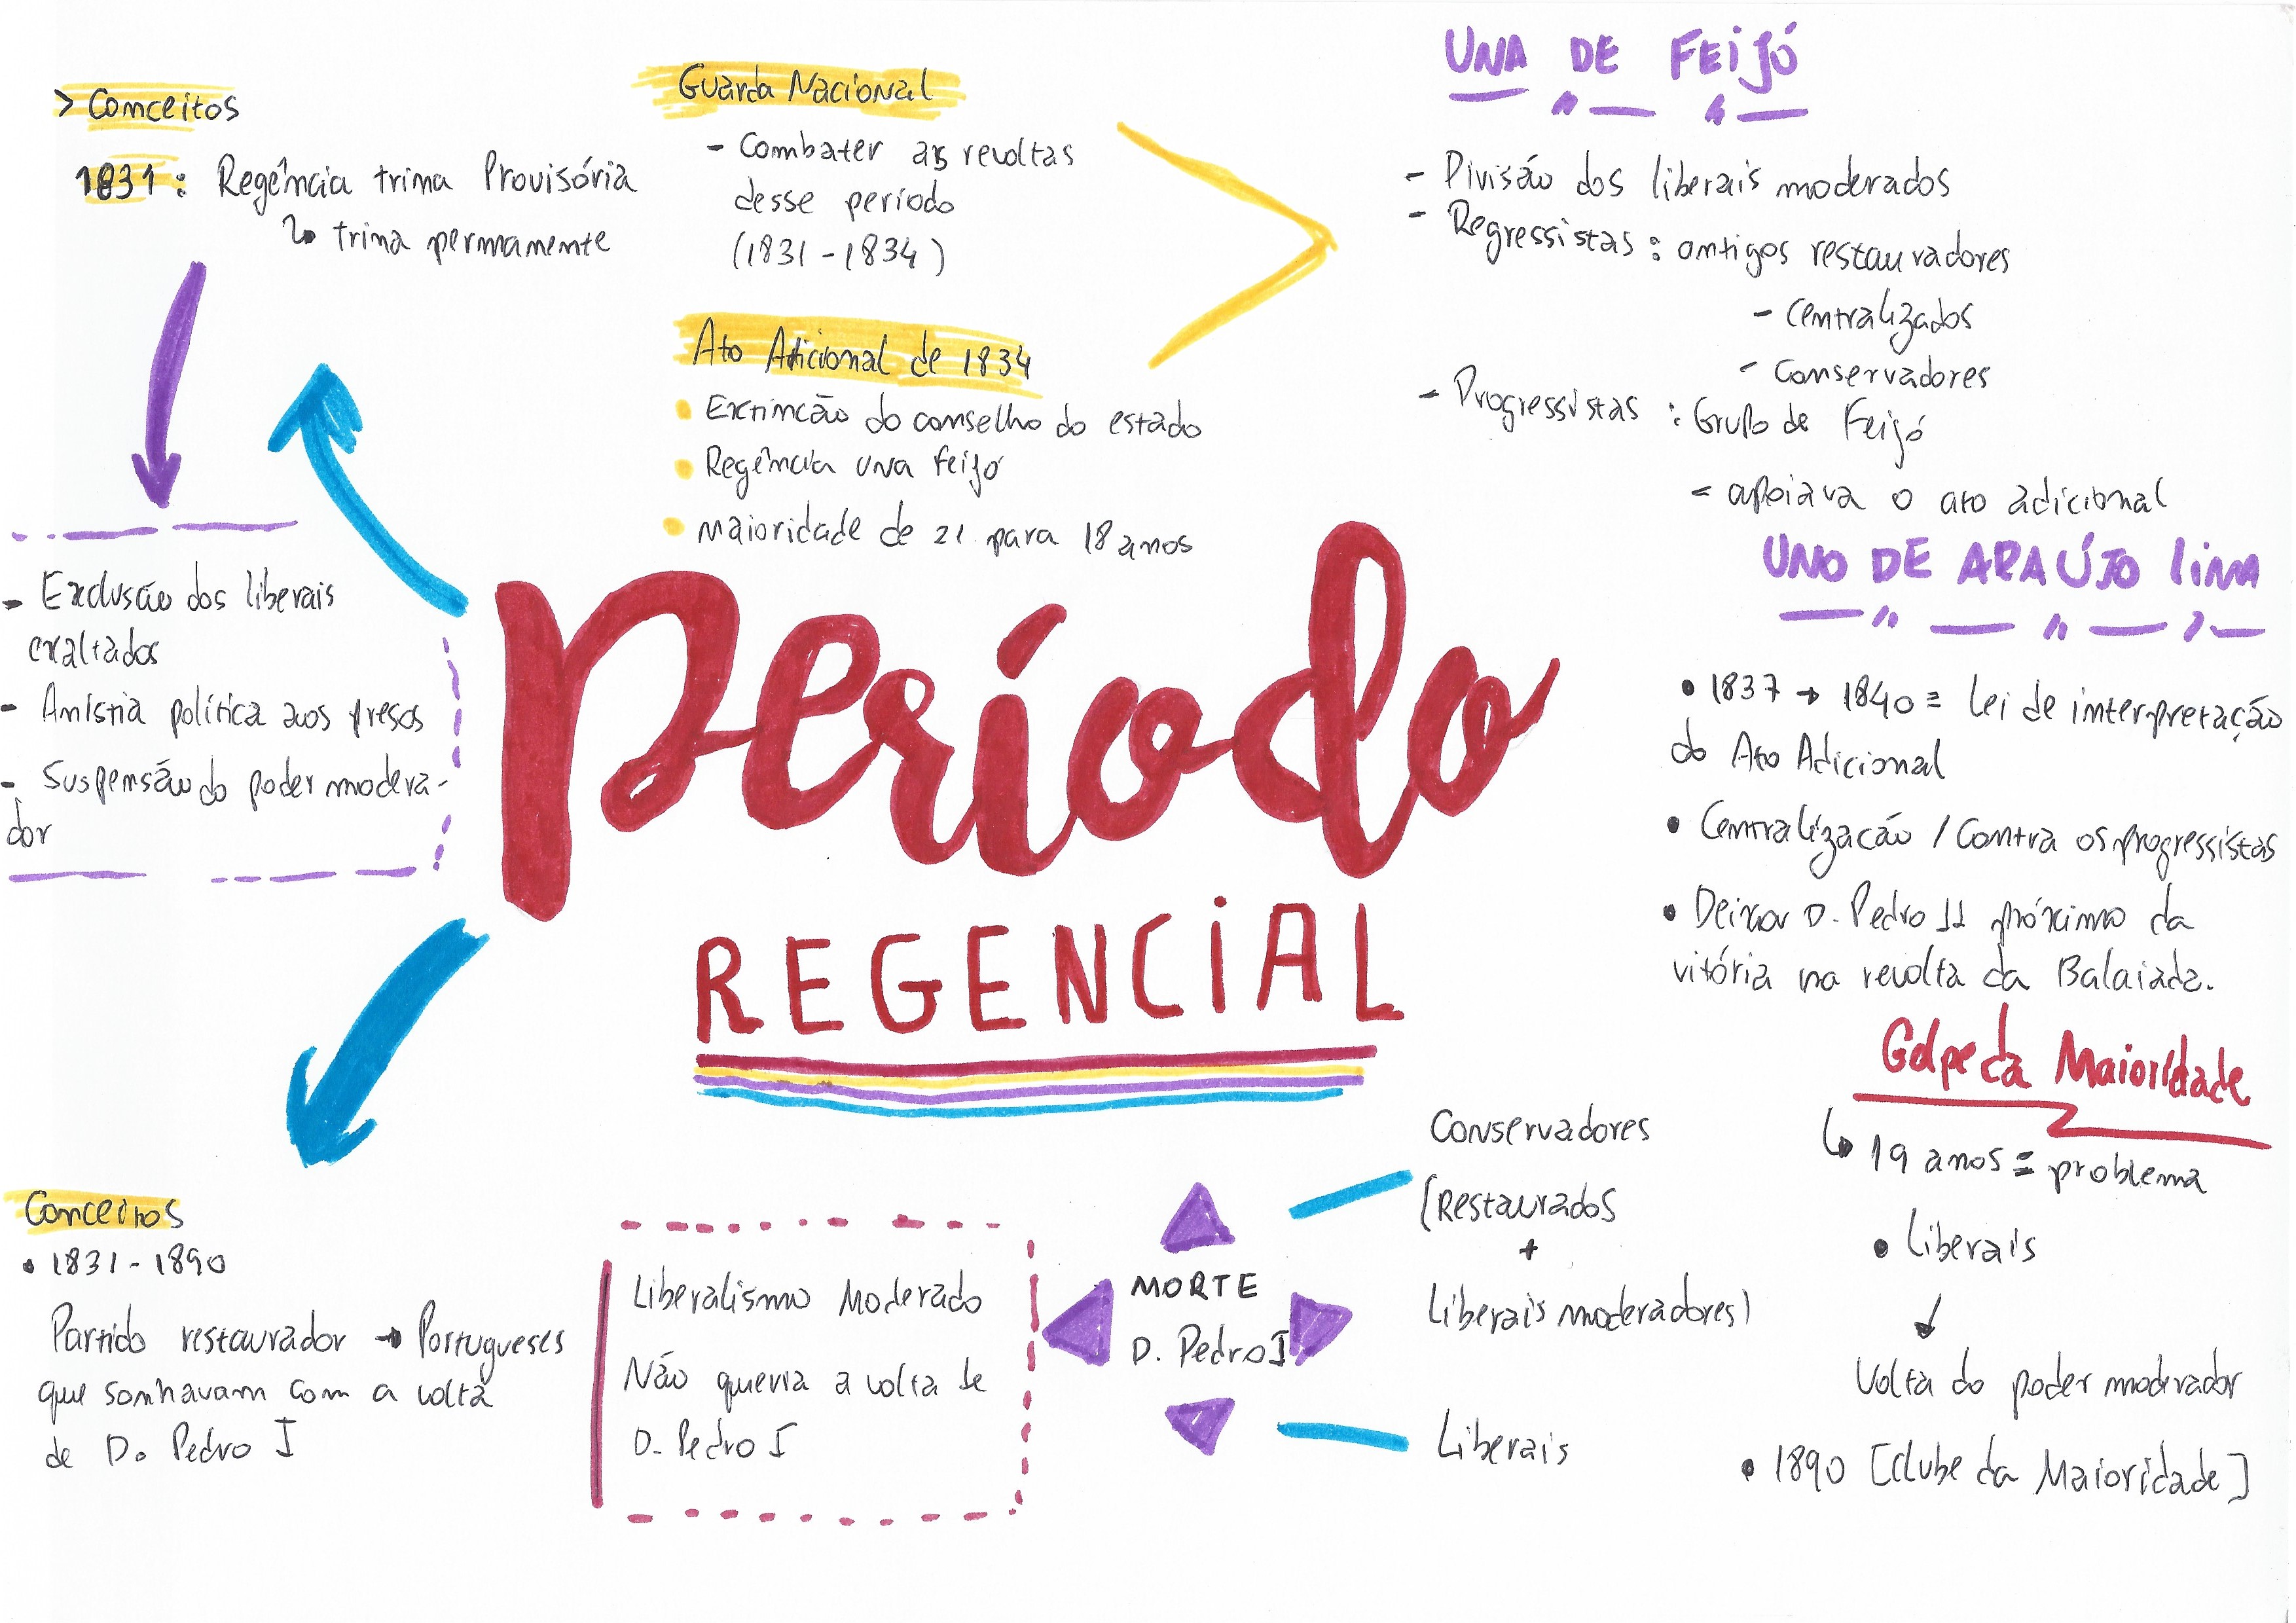 > Conceitos
1831: Regência trina Provisória
↳ trina permanente
- Exclusão dos liberais
exaltados
- Anistia política aos presos
- Suspensão do poder modera-
dor
Guarda Nacional
- Combater as revoltas
desse período
(1831-1834)
Ato Adicional de 1834
• Extincão do conselho do estado
• Regência una feijó
• Maioridade de 21 para 18 anos
UNA DE FEIJÓ
- Divisão dos liberais moderados
- Regressistas: antigos restauradores
- Centralizados
- Conservadores
- Progressistas: Grupo de Feijó
- apoiava o ato adicional
UNO DE ARAÚJO LIMA
• 1837 → 1840 = Lei de interpretação
do Ato Adicional
• Centralizacão / Contra os progressistas
• Deixar D. Pedro II próximo da
vitória na revolta da Balaiada.
Período
REGENCIAL
Golpe da Maioridade
↳ 19 anos = problema
• Liberais
↓
Volta do poder moderador
• 1890 [Clube da Maioridade]
Conceitos
• 1831-1890
Partido restaurador → Portugueses
que sonhavam com a volta
de D. Pedro I
Liberalismo Moderado
Não queria a volta de
D. Pedro I
MORTE
D. Pedro I
Conservadores
(Restaurados
+
Liberais moderadores)
Liberais